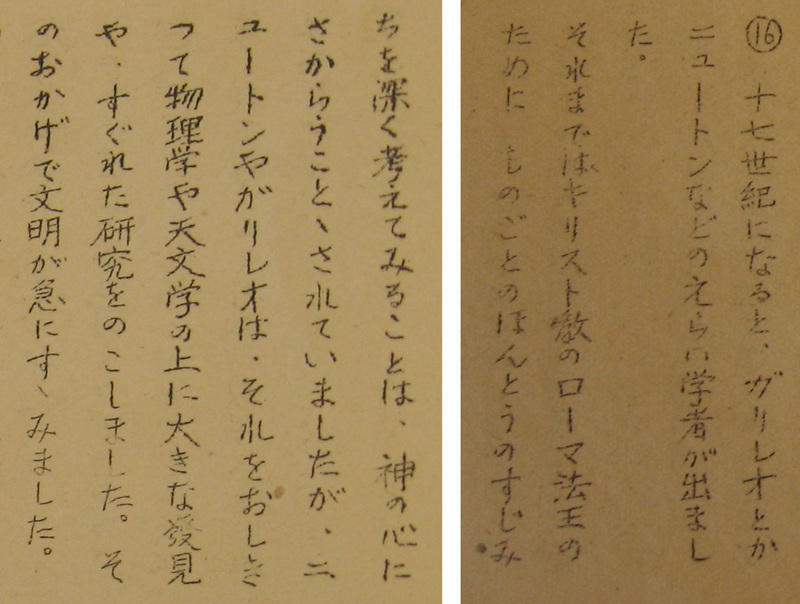 ⑯ 十七世紀になると、ガリレオとか
ニュートンなどのえらい学者が出まし
た。
それまではキリスト教のローマ法王の
ために ものごとのほんとうのすじみ
ちを深く考えてみることは、神の心に
さからうこと、されていましたが、ニ
ュートンやガリレオは、それをおしき
つて物理学や天文学の上に大きな發見
や、すぐれた研究をのこしました。そ
のおかげで文明が急にすヽみました。